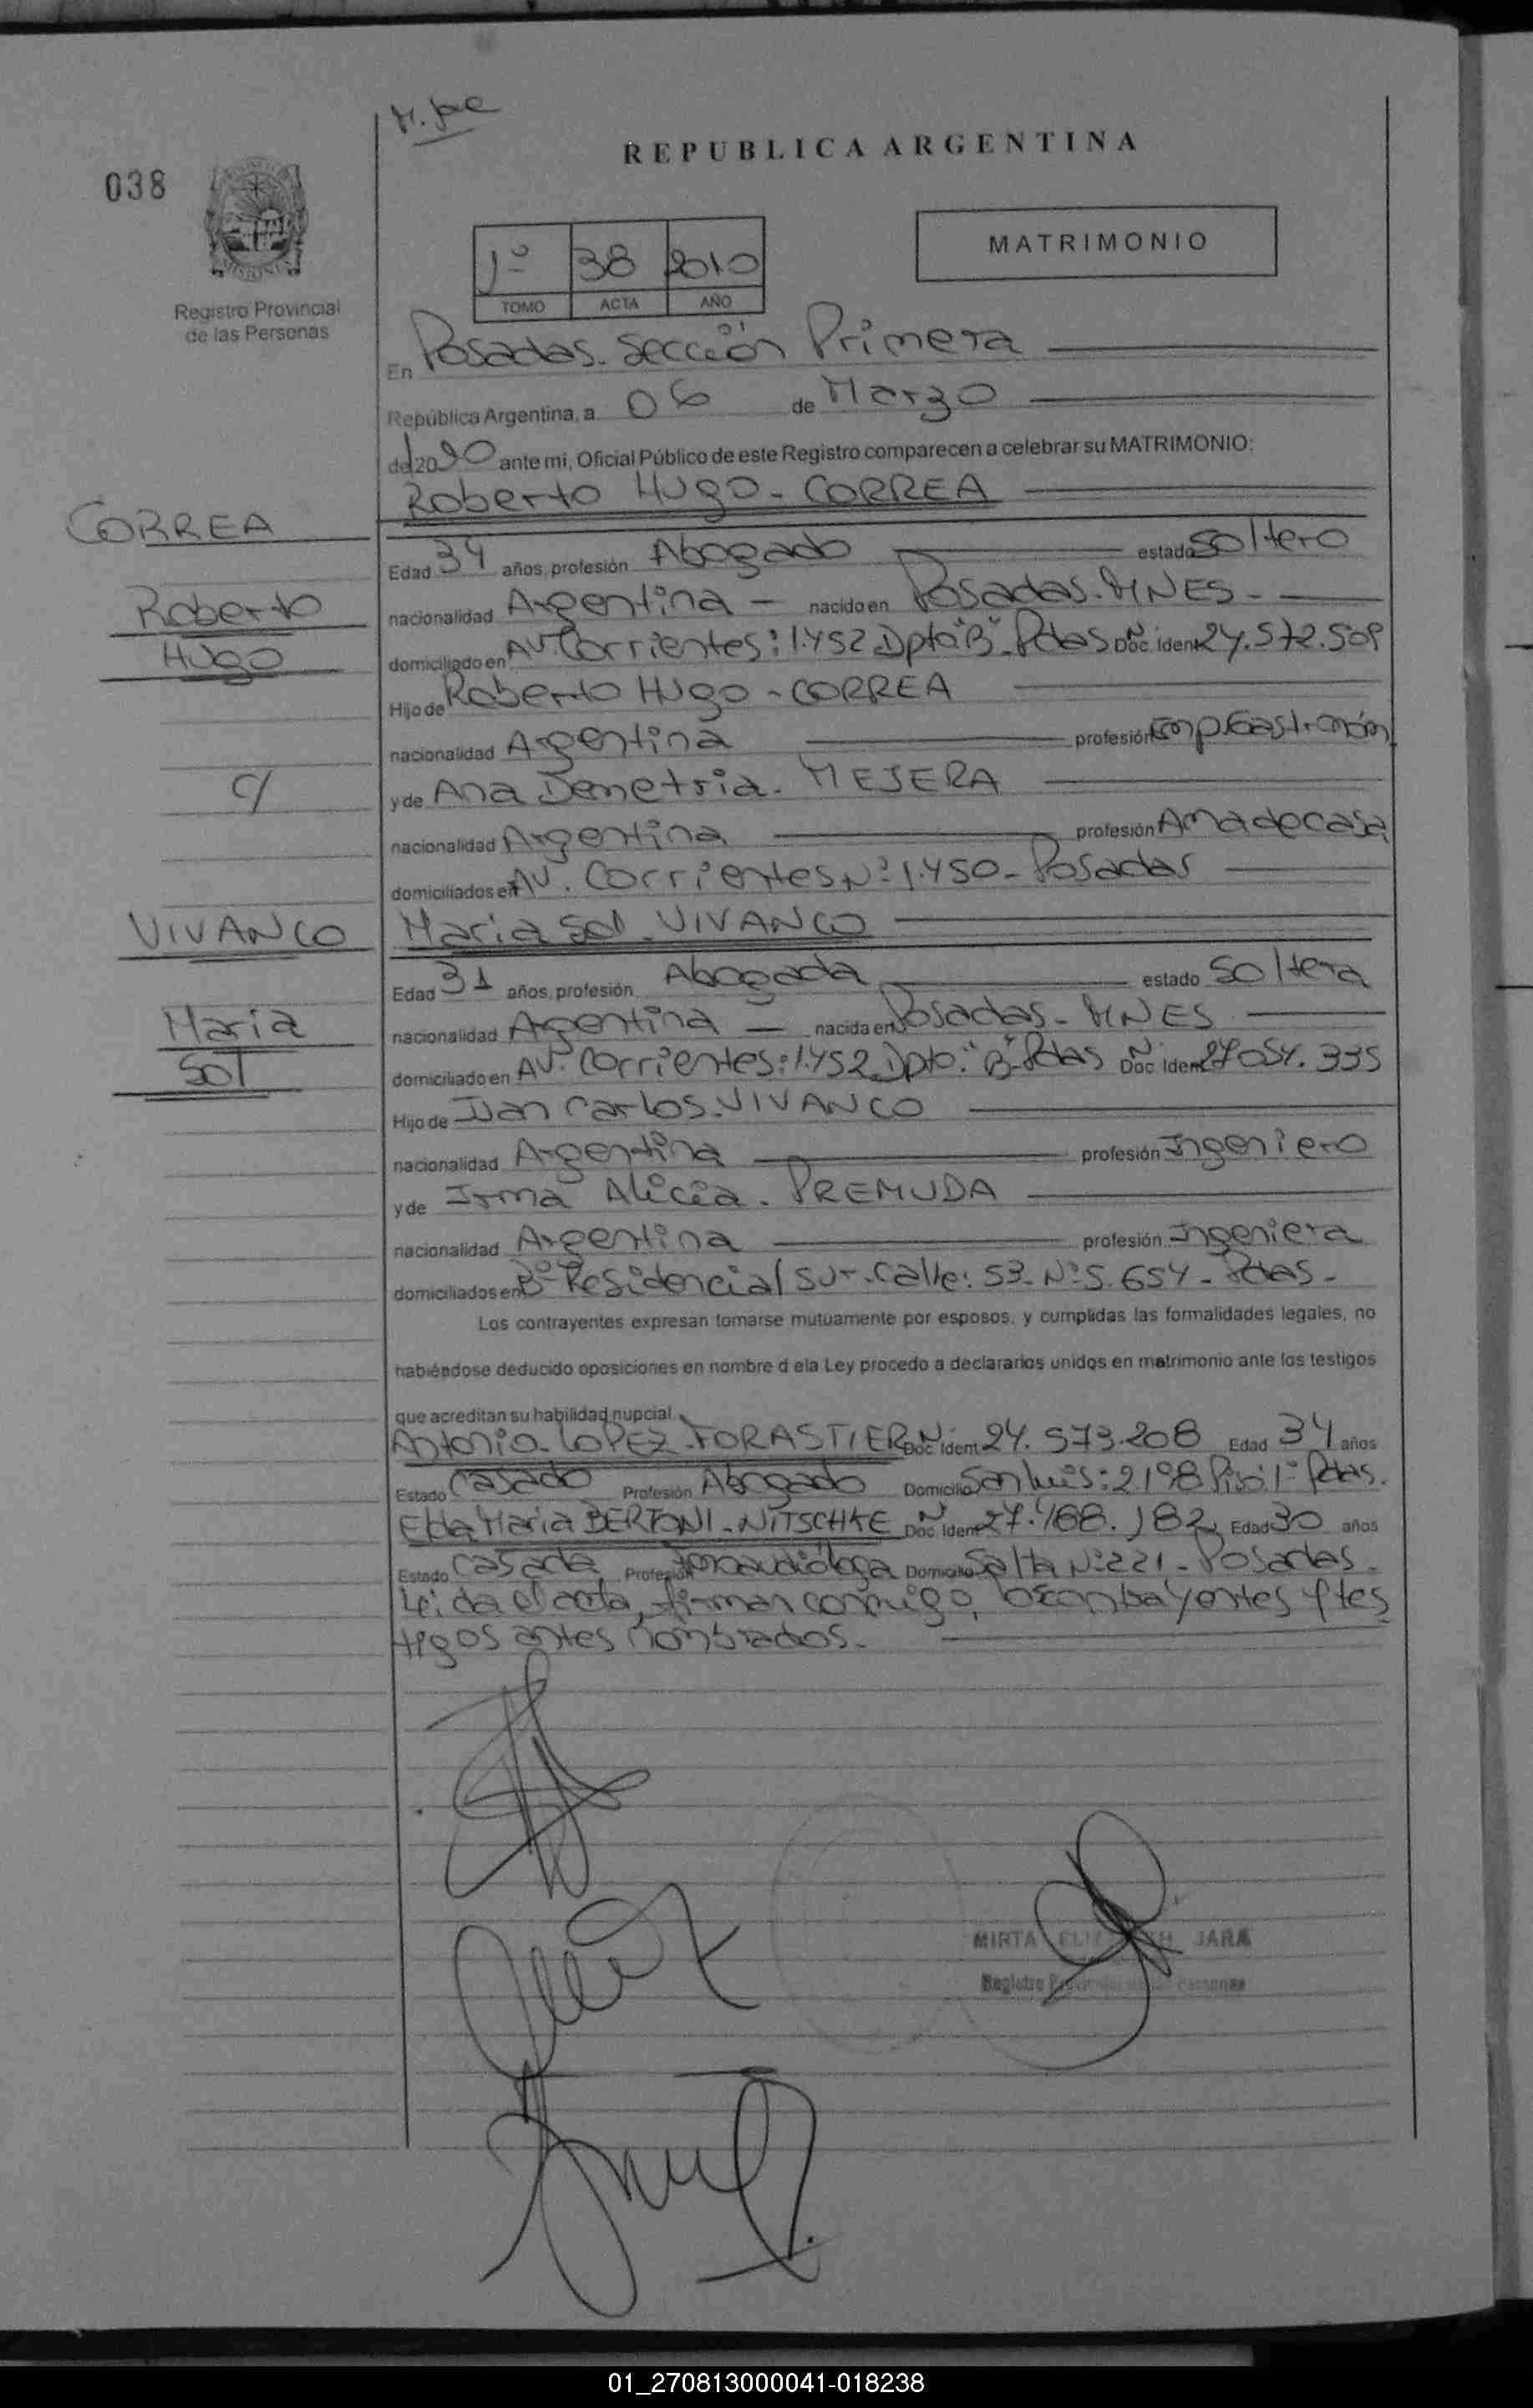 M. Jac
REPUBLICA ARGENTINA
038
1º 38 2010
TOMO ACTA AÑO
MATRIMONIO
Registro Provincial
de las Personas
En Posadas. Sección Primera
República Argentina, a 06 de Marzo
del 2010 ante mi, Oficial Público de este Registro comparecen a celebrar su MATRIMONIO:
Roberto Hugo - CORREA
CORREA
Edad 34 años, profesión Abogado estado Soltero
Roberto
nacionalidad Argentina - nacido en Posadas. MNES -
Hugo
domiciliado en AV. Corrientes: 1.452 Dpto "B" - Pdas Nº Doc. Ident 24.572.509
Hijo de Roberto Hugo - CORREA
nacionalidad Argentina profesión Emp. Gastronóm
C/
y de Ana Demetria. MEJERA
nacionalidad Argentina profesión Ama de casa
domiciliados en AV. Corrientes Nº 1.450 - Posadas
VIVANCO
Maria Sol - VIVANCO
Edad 31 años, profesión Abogada estado Soltera
Maria
nacionalidad Argentina - nacida en Posadas - MNES
Sol
domiciliado en AV. Corrientes: 1.452 Dpto. "B" - Pdas Nº Doc. Ident 27.054.335
Hijo de Juan Carlos. VIVANCO
nacionalidad Argentina profesión Ingeniero
y de Irma Alicia. PREMUDA
nacionalidad Argentina profesión Ingeniera
domiciliados en Bº Residencial Sur - Calle: 53 - Nº 5.654 - Pdas -
Los contrayentes expresan tomarse mutuamente por esposos, y cumplidas las formalidades legales, no
habiéndose deducido oposiciones en nombre d ela Ley procedo a declararlos unidos en matrimonio ante los testigos
que acreditan su habilidad nupcial.
Antonio - LOPEZ - FORASTIER Nº Doc Ident 24.573.208 Edad 34 años
Estado Casado Profesión Abogado Domicilio San Luis: 2198 Piso 1º Pdas.
Elda Maria BERTONI - NITSCHKE Nº Doc Ident 27.488.182 Edad 30 años
Estado Casada Profesión Fonoaudióloga Domicilio Salta Nº 221 - Posadas -
Leida el acta, firman conmigo, los contrayentes y tes
tigos antes nombrados.
MIRTA ELIZABETH JARA
Registro Provincial de las Personas
01_270813000041-018238